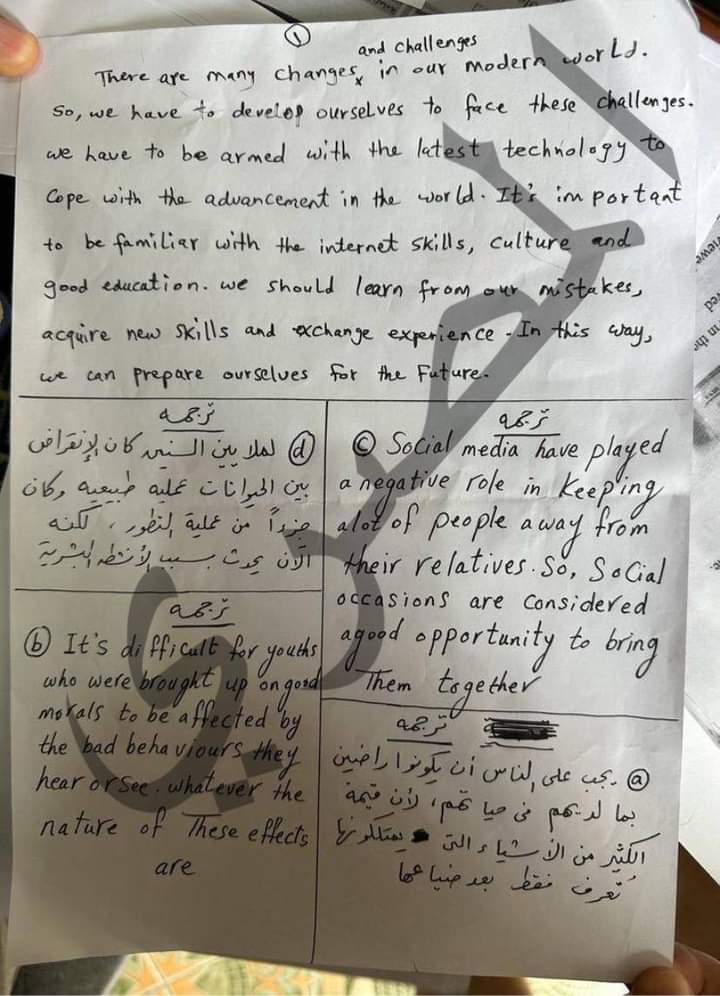 ①
and challenges
There are many changes x in our modern world.
So, we have to develop ourselves to face these challenges.
we have to be armed with the latest technology to
Cope with the advancement in the world. It's important
to be familiar with the internet skills, culture and
good education. we should learn from our mistakes,
acquire new skills and exchange experience. In this way,
we can prepare ourselves for the Future.
ترجمه
ⓓ لملايين السنين كان الإنقراض
بين الحيوانات عملية طبيعيه وكان
جزءاً من عملية التطور ، لكنه
الآن يحدث بسبب الأنشطه البشرية
ترجمه
ⓒ Social media have played
a negative role in keeping
alot of people away from
their relatives. So, Social
occasions are considered
agood opportunity to bring
Them together
ترجمه
ⓑ It's difficult for youths
who were brought up on good
morals to be affected by
the bad behaviours they
hear or see. whatever the
nature of These effects
are
ترجمه
ⓐ يجب على الناس أن يكونوا راضين
بما لديهم فى حياتهم، لأن قيمة
الكثير من الأشياء التى يمتلكونها
تُعرف فقط بعد ضياعها